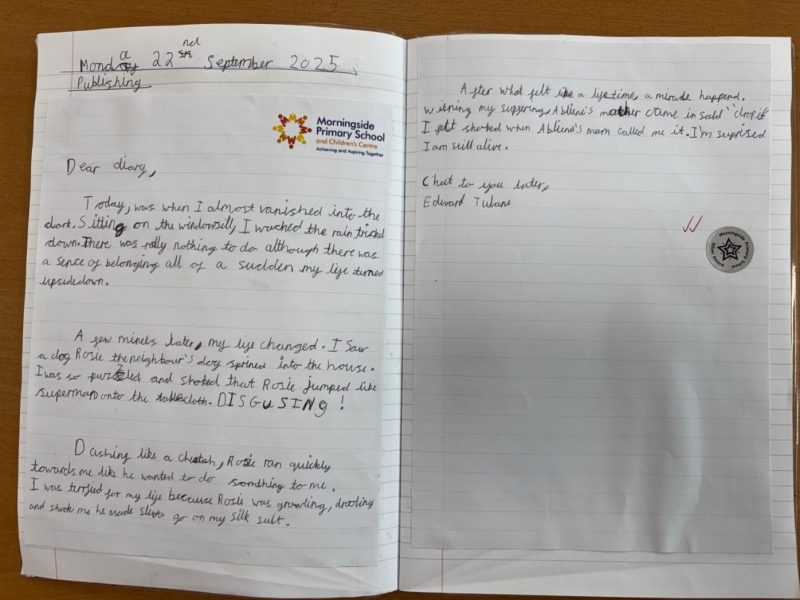 Monday 22nd September 2025
Publishing
Morningside
Primary School
and Children's Centre
Achieving and Aspiring Together
Dear diary,
Today, was when I almost vanished into the
dark. Sitting on the windowsill, I wached the rain
down. There was relly nothing to do although there was
a sence of belonging all of a sudden my life turned
upsidedown.
A few minets later, my life changed. I saw
a dog Rosie the neighbour's dog sprined into the house.
I was so puzzled and shoked that Rosie jumped like
superman onto the tablecloth. DISGUSING!
Dashing like a cheetah, Rosie ran quickly
towards me like he wanted to do somthing to me.
I was terfied for my life because Rosie was growling, drooling
and shook me he made go on my silk suit.
After what felt like a lifetime, a miracle happend.
my suffering, Abliene's mother came in said "drop it
I felt shoked when Abliene's mum called me it. I'm suprised
I am still alive.
Chat to you later,
Edward Tulane